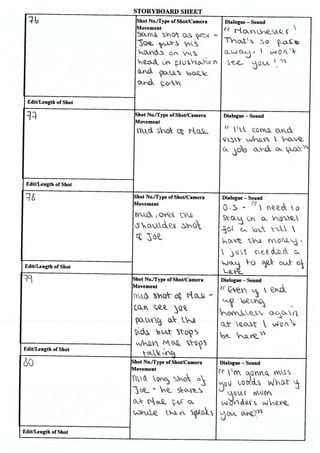 STORYBOARD SHEET
76
Shot No./Type of Shot/Camera
Movement
Same shot as prev -
Joe puts his
hands on his
head in frustration
and paces back
and forth
Dialogue – Sound
"Manchester!
That's so far
away. I won't
see you!"
Edit/Length of Shot
77
Shot No./Type of Shot/Camera
Movement
mid shot of Mae
Dialogue – Sound
"I'll come and
visit when I have
a job and a flat"
Edit/Length of Shot
78
Shot No./Type of Shot/Camera
Movement
mid, over the
shoulder shot
of Joe
Dialogue – Sound
O.S - "I need to
stay in a hostel
for a bit till I
have the money.
I just needed a
way to get out of
here
Edit/Length of Shot
79
Shot No./Type of Shot/Camera
Movement
mid shot of Mae -
can see Joe
pacing at the
side but stops
when Mae stops
talking
Dialogue – Sound
"Even if I end
up being
homeless again
at least I won't
be here"
Edit/Length of Shot
80
Shot No./Type of Shot/Camera
Movement
mid long shot of
Joe - he stares
at Mae for a
while then speaks
Dialogue – Sound
"I'm gonna miss
you loads what if
your mum
wonders where
you are"
Edit/Length of Shot